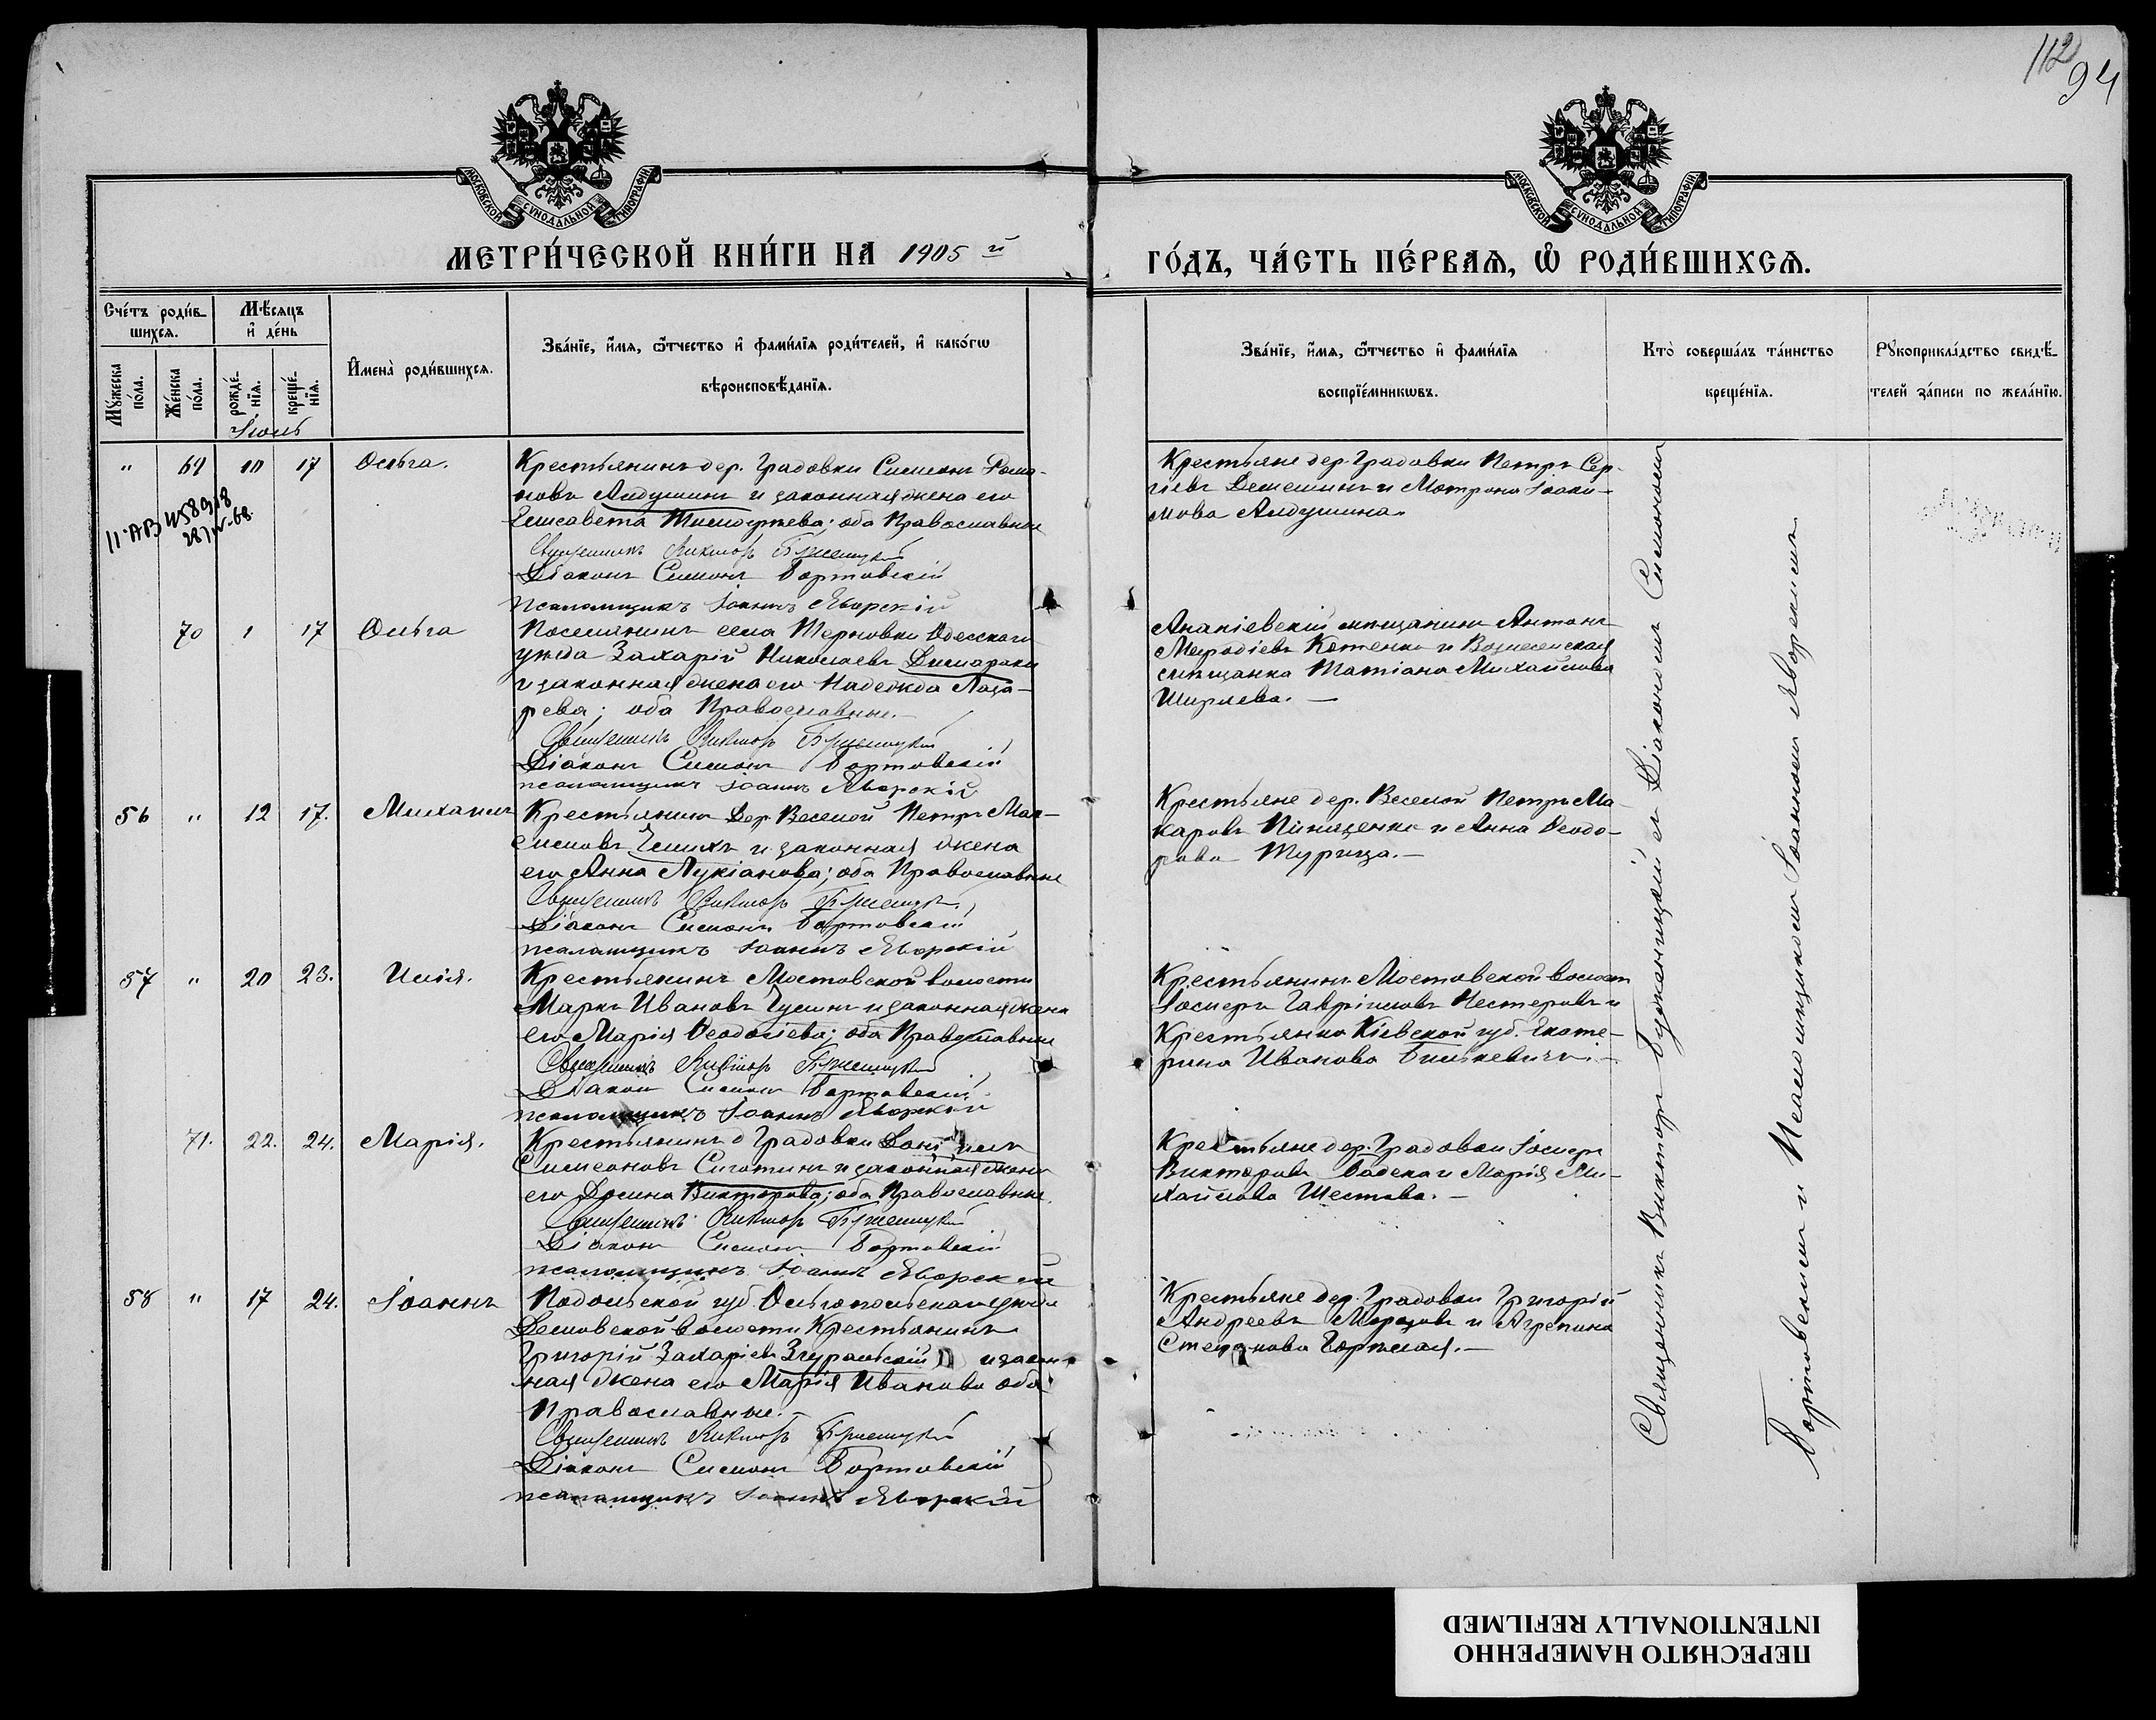 112
94
МОСКОВСКОЙ СѴНОДАЛЬНОЙ ТИПОГРАФІИ
МОСКОВСКОЙ СѴНОДАЛЬНОЙ ТИПОГРАФІИ
МЕТРИ́ЧЕСКОЙ КНИ́ГИ НА 1905 й
ГО́ДЪ, ЧА́СТЬ ПЕ́РВАѦ, Ѽ РОДИ́ВШИХСѦ.
Сче́тъ роди́в-
шихсѧ.
Мѣ́сѧцъ
и҆ де́нь
Мꙋ́жеска по́ла.
Же́нска по́ла.
рожде́-нїѧ.
креще́-нїѧ.
И҆мена̀ роди́вшихсѧ.
Зва́нїе, и҆́мѧ, ѻ҆́тчество и҆ фами́лїѧ роди́телей, и҆ како́гѡ
вѣроисповѣ́данїѧ.
Зва́нїе, и҆́мѧ, ѻ҆́тчество и҆ фами́лїѧ
воспрїе́мникѡвъ.
Кто̀ соверша́лъ та́инство
креще́нїѧ.
Рꙋкоприкла́дство свидѣ́-
телей за́писи по жела́нїю.
" 69 10 17 Ольга.
Крестьянинъ дер. Градовки Симеонъ Рома-
новъ Андушинъ и законная жена его
Елисавета Тимофеева; оба Православные
Священникъ Викторъ
Діаконъ Симеонъ Бортовскій
псаломщикъ Іоаннъ Яворскій
Крестьяне дер. Градовки Петръ Сер-
гіевъ и Матрона Іоаки-
мова Андушина.
II-АВ
70 1 17 Ольга
Поселянинъ села Терновки Одесскаго
уѣзда Захарій Николаевъ Димараки
и законная жена его Надежда Лаза-
рева; оба Православные.
Священникъ Викторъ
Діаконъ Симеонъ Бортовскій
псаломщикъ Іоаннъ Яворскій
Ананіевскій мѣщанинъ Антонъ
Меѳодіевъ Котенко и Вознесенская
мѣщанка Татіана Михайлова
Ширяева.
56 " 12 17. Михаилъ
Крестьянинъ Дер. Веселой Петръ Мак-
симовъ и законная жена
его Анна Лукіанова; оба Православные
Священникъ Викторъ
Діаконъ Симеонъ Бортовскій
псаломщикъ Іоаннъ Яворскій
Крестьяне дер. Веселой Петръ Ма-
каровъ и Анна Ѳеодо-
рова Турица.
57 " 20 23. Илія.
Крестьянинъ Мостовской волости
Маркъ Ивановъ Гусинъ и законная жена
его Марія Ѳеодосіева; оба Православные
Священникъ Викторъ
Діаконъ Симеонъ Бортовскій
псаломщикъ Іоаннъ Яворскій
Крестьянинъ Мостовской волости
Іосифъ Гавріиловъ Нестеровъ и
Крестьянка Кіевской губ. Екате-
рина Иванова Билькевичъ.
71. 22. 24. Марія.
Крестьянинъ д. Градовки Даніилъ
Симеоновъ Сиготинъ и законная жена
его Досина Викторова; оба Православные.
Священникъ Викторъ
Діаконъ Симеонъ Бортовскій
псаломщикъ Іоаннъ Яворскій
Крестьяне дер. Градовки Іосифъ
Викторовъ и Марія Ми-
хайлова Шестова.
58 " 17 24. Іоаннъ
Подольской губ. Ольгопольскаго уѣзда
Демовской волости Крестьянинъ
Григорій Захаріевъ Згуральскій и закон-
ная жена его Марія Иванова оба
Православные.
Священникъ Викторъ
Діаконъ Симеонъ Бортовскій
псаломщикъ Іоаннъ Яворскій
Крестьяне дер. Градовки Григорій
Андреевъ Морозовъ и Агрепина
Степанова
Священникъ Викторъ съ Діакономъ Симеономъ
Бортовскимъ и Псаломщикомъ Іоанномъ Яворскимъ
ПЕРЕСНЯТО НАМЕРЕННО
INTENTIONALLY REFILMED